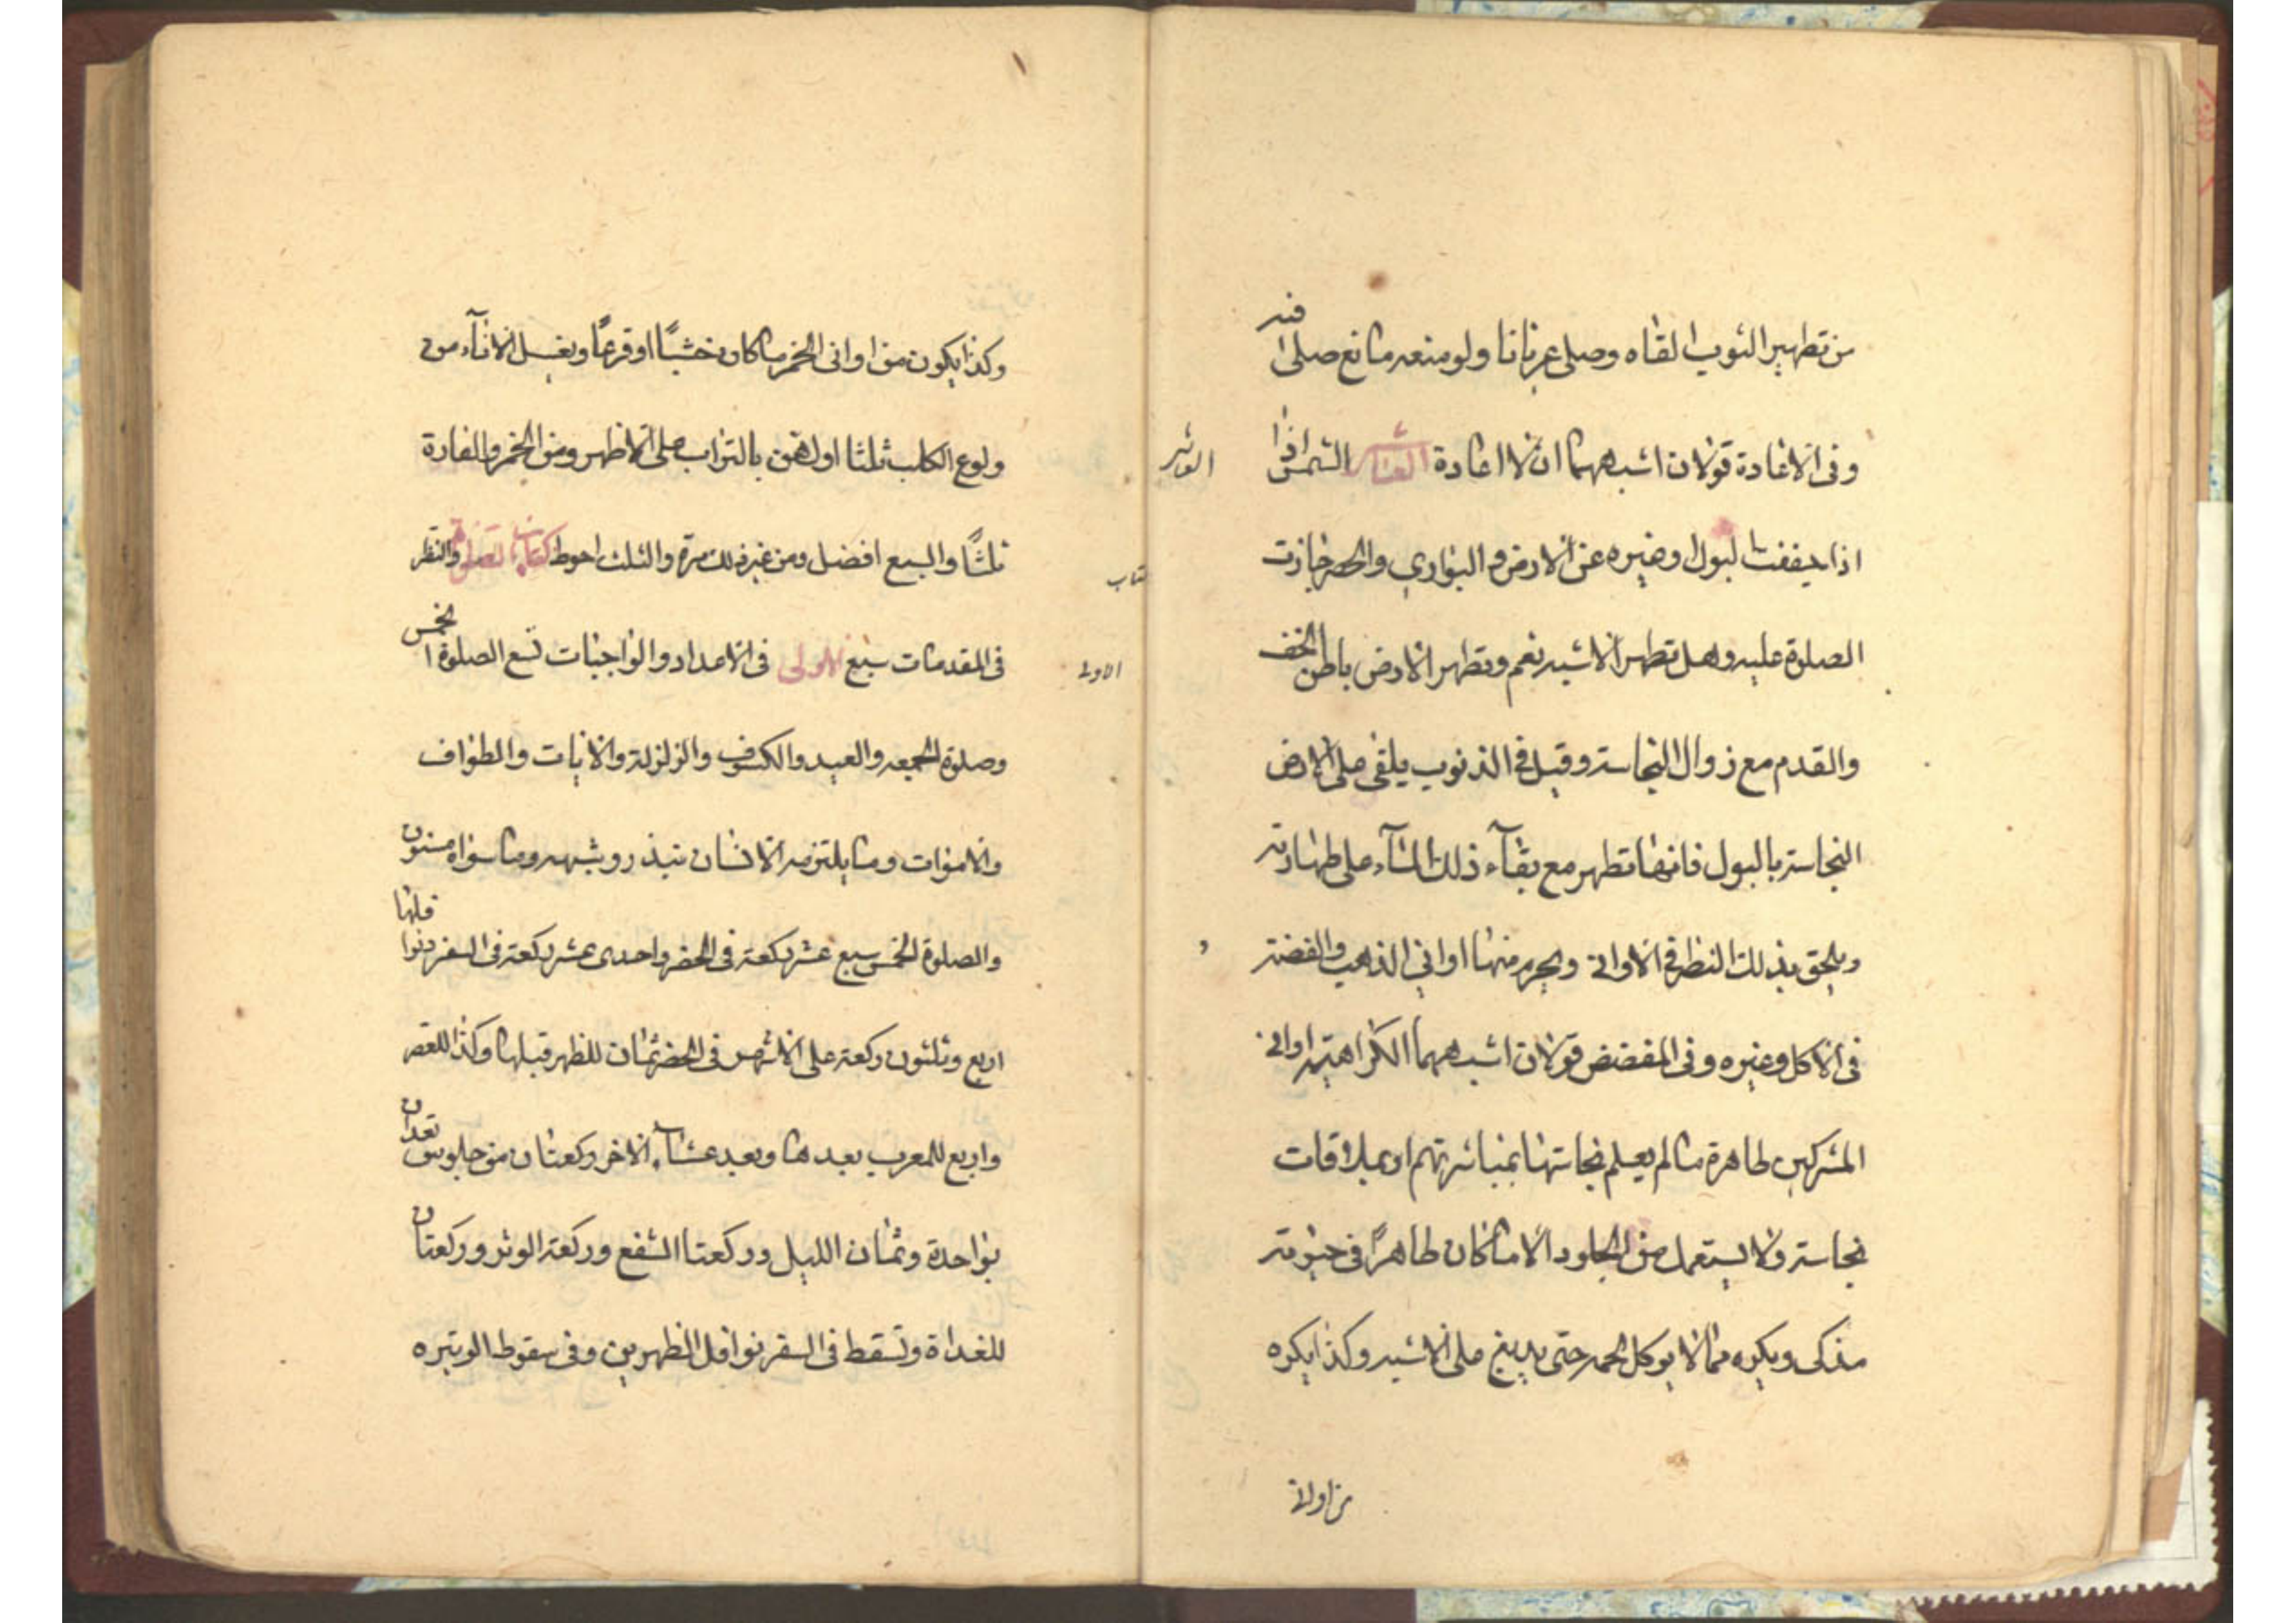 من تطهير الثوب القاه وصلى عريانا ولو منعه مانع صلى فيه
وفى الاعادة قولان اشبههما ان لا اعادة العاشر الشمس اذا
العاشر
اذا جففت البول وغيره عن الارض والبوارى والحصر جازت
الصلوة عليه وهل تطهر الاشبه نعم وتطهر الارض باطن الخف
والقدم مع زوال النجاسة وقيل فى الذنوب يلقى على الارض
النجاسة بالبول فانها تطهر مع بقآء ذلك المآء على طهارته
ويلحق بذلك النظر فى الاوانى ويحرم منها اوانى الذهب والفضة
فى الاكل وغيره وفى المفضض قولان اشبههما الكراهية اوانى
المشركين طاهرة ما لم يعلم نجاستها بمباشرتهم او بملاقات
نجاسة ولا يستعمل من الجلود الا ما كان طاهرًا فى حيوته
مذكى ويكره مما لا يوكل لحمه حتى يدبغ على الاشبه وكذا يكره
من اوانى
وكذا يكون من اوانى الخمر ما كان خشبًا او قرعًا ويغسل الانآء من
ولوغ الكلب ثلثا اولهن بالتراب على الاظهر ومن الخمر والفارة
ثلثًا والسبع افضل ومن غير ذلك مرة والثلث احوط كتاب الصلوة والنظر
كتاب
فى المقدمات سبع الاولى فى الاعداد والواجبات تسع الصلوة الخمس
الاولى
وصلوة الجمعه والعيد والكسوف والزلزلة والايات والطواف
والاموات وما يلتزمه الانسان بنذر وشبهه وما سواه مسنون
والصلوة الخمس سبع عشر ركعة فى الحضر واحدى عشر ركعة فى السفر ونوافلها
اربع وثلثون ركعة على الاشهر فى الحضر ثمان للظهر قبلها وكذا للعصر
واربع للمغرب بعدها وبعد عشاء الاخر ركعتان من جلوس تعدان
بواحدة وثمان الليل وركعتا الشفع وركعة الوتر وركعتان
للغداة وتسقط فى السفر نوافل الظهرين وفى سقوط الوتيره